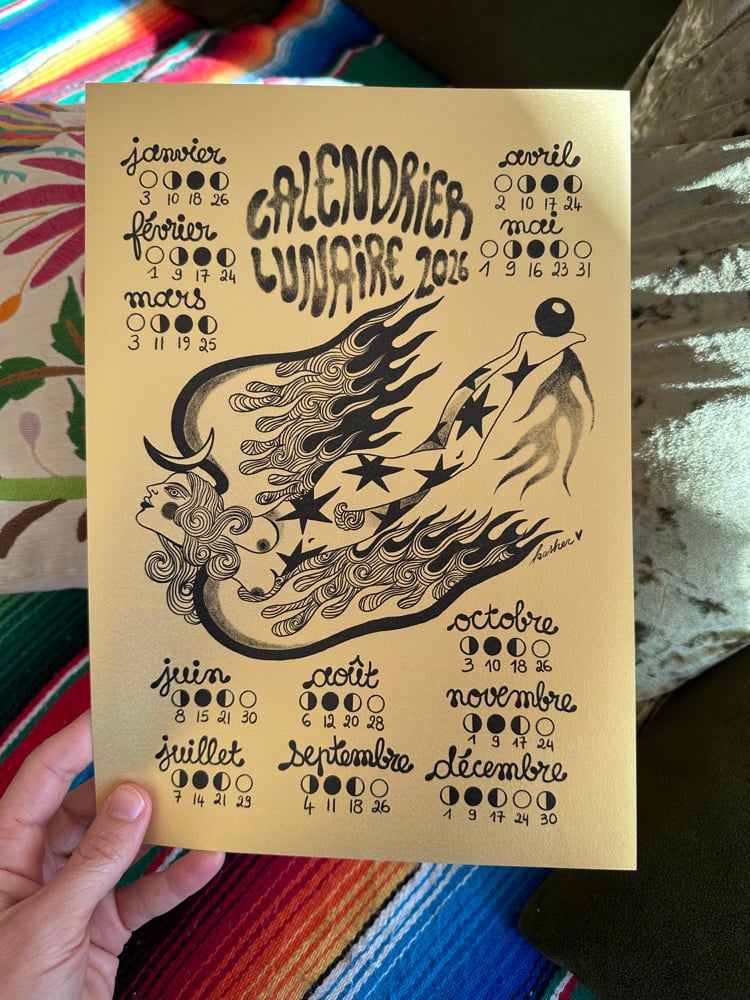 CALENDRIER
LUNAIRE 2026
janvier
3 10 18 26
février
1 9 17 24
mars
3 11 19 25
avril
2 10 17 24
mai
1 9 16 23 31
kesher
juin
8 15 21 30
juillet
7 14 21 29
août
6 12 20 28
septembre
4 11 18 26
octobre
3 10 18 26
novembre
1 9 17 24
décembre
1 9 17 24 30